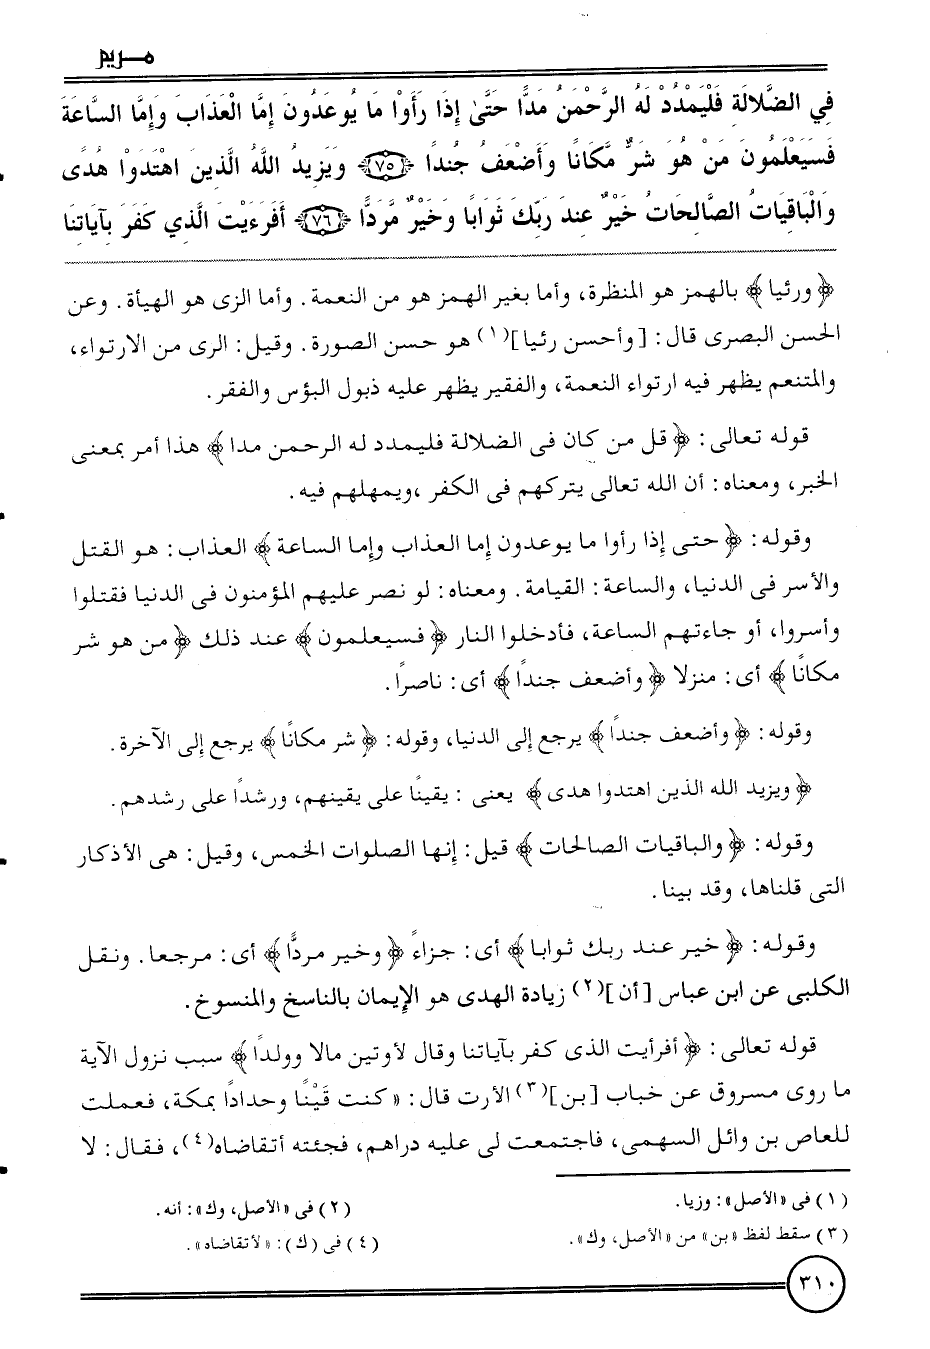 مـريم
فِي الضَّلالَةِ فَلْيَمْدُدْ لَهُ الرَّحْمَنُ مَدًّا حَتَّىٰ إِذَا رَأَوْا مَا يُوعَدُونَ إِمَّا الْعَذَابَ وَإِمَّا السَّاعَةَ
فَسَيَعْلَمُونَ مَنْ هُوَ شَرٌّ مَّكَانًا وَأَضْعَفُ جُندًا ﴿٧٥﴾ وَيَزِيدُ اللَّهُ الَّذِينَ اهْتَدَوْا هُدًى
وَالْبَاقِيَاتُ الصَّالِحَاتُ خَيْرٌ عِندَ رَبِّكَ ثَوَابًا وَخَيْرٌ مَّرَدًّا ﴿٧٦﴾ أَفَرَءَيْتَ الَّذِي كَفَرَ بِآيَاتِنَا
﴿ورئيا﴾ بالهمز هو المنظرة، وأما بغير الهمز هو من النعمة. وأما الزى هو الهيأة. وعن
الحسن البصرى قال: [وأحسن رئيا](١) هو حسن الصورة. وقيل: الرى من الارتواء،
والمتنعم يظهر فيه ارتواء النعمة، والفقير يظهر عليه ذبول البؤس والفقر.
قوله تعالى: ﴿قل من كان فى الضلالة فليمدد له الرحمن مدا﴾ هذا أمر بمعنى
الخبر، ومعناه: أن الله تعالى يتركهم فى الكفر ،ويمهلهم فيه.
وقوله: ﴿حتى إذا رأوا ما يوعدون إما العذاب وإما الساعة﴾ العذاب: هو القتل
والأسر فى الدنيا، والساعة: القيامة. ومعناه: لو نصر عليهم المؤمنون فى الدنيا فقتلوا
وأسروا، أو جاءتهم الساعة، فأدخلوا النار ﴿فسيعلمون﴾ عند ذلك ﴿من هو شر
مكانًا﴾ أى: منزلا ﴿وأضعف جندًا﴾ أى: ناصرًا.
وقوله: ﴿وأضعف جندًا﴾ يرجع إلى الدنيا، وقوله: ﴿شر مكانًا﴾ يرجع إلى الآخرة.
﴿ويزيد الله الذين اهتدوا هدى﴾ يعنى : يقينًا على يقينهم، ورشدًا على رشدهم.
وقوله: ﴿والباقيات الصالحات﴾ قيل: إنها الصلوات الخمس، وقيل: هى الأذكار
التى قلناها، وقد بينا.
وقوله: ﴿خير عند ربك ثوابا﴾ أى: جزاءً ﴿وخير مردًّا﴾ أى: مرجعا. ونقل
الكلبى عن ابن عباس [أن](٢) زيادة الهدى هو الإيمان بالناسخ والمنسوخ.
قوله تعالى: ﴿أفرأيت الذى كفر بآياتنا وقال لأوتين مالا وولدًا﴾ سبب نزول الآية
ما روى مسروق عن خباب [بن](٣) الأرت قال: «كنت قَيْنًا وحدادًا بمكة، فعملت
للعاص بن وائل السهمى، فاجتمعت لى عليه دراهم، فجئته أتقاضاه(٤)، فقال: لا
(١) فى «الأصل»: وزيا.
(٢) فى «الأصل، وك»: أنه.
(٣) سقط لفظ «بن» من «الأصل، وك».
(٤) فى (ك): «لأتقاضاه».
٣١٠